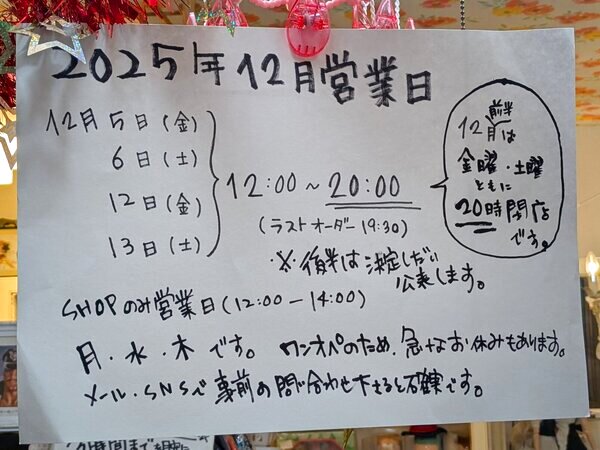 2025年12月営業日
12月5日(金)
6日(土)
12日(金)
13日(土)
12:00~20:00
(ラストオーダー19:30)
12月前半は
金曜・土曜
ともに
20時閉店
です。
※後半は決定しだい
公表します。
SHOPのみ営業日(12:00-14:00)
月・水・木です。ワンオペのため、急なお休みもあります。
メール・SNSで事前の問い合わせ下さると確実です。